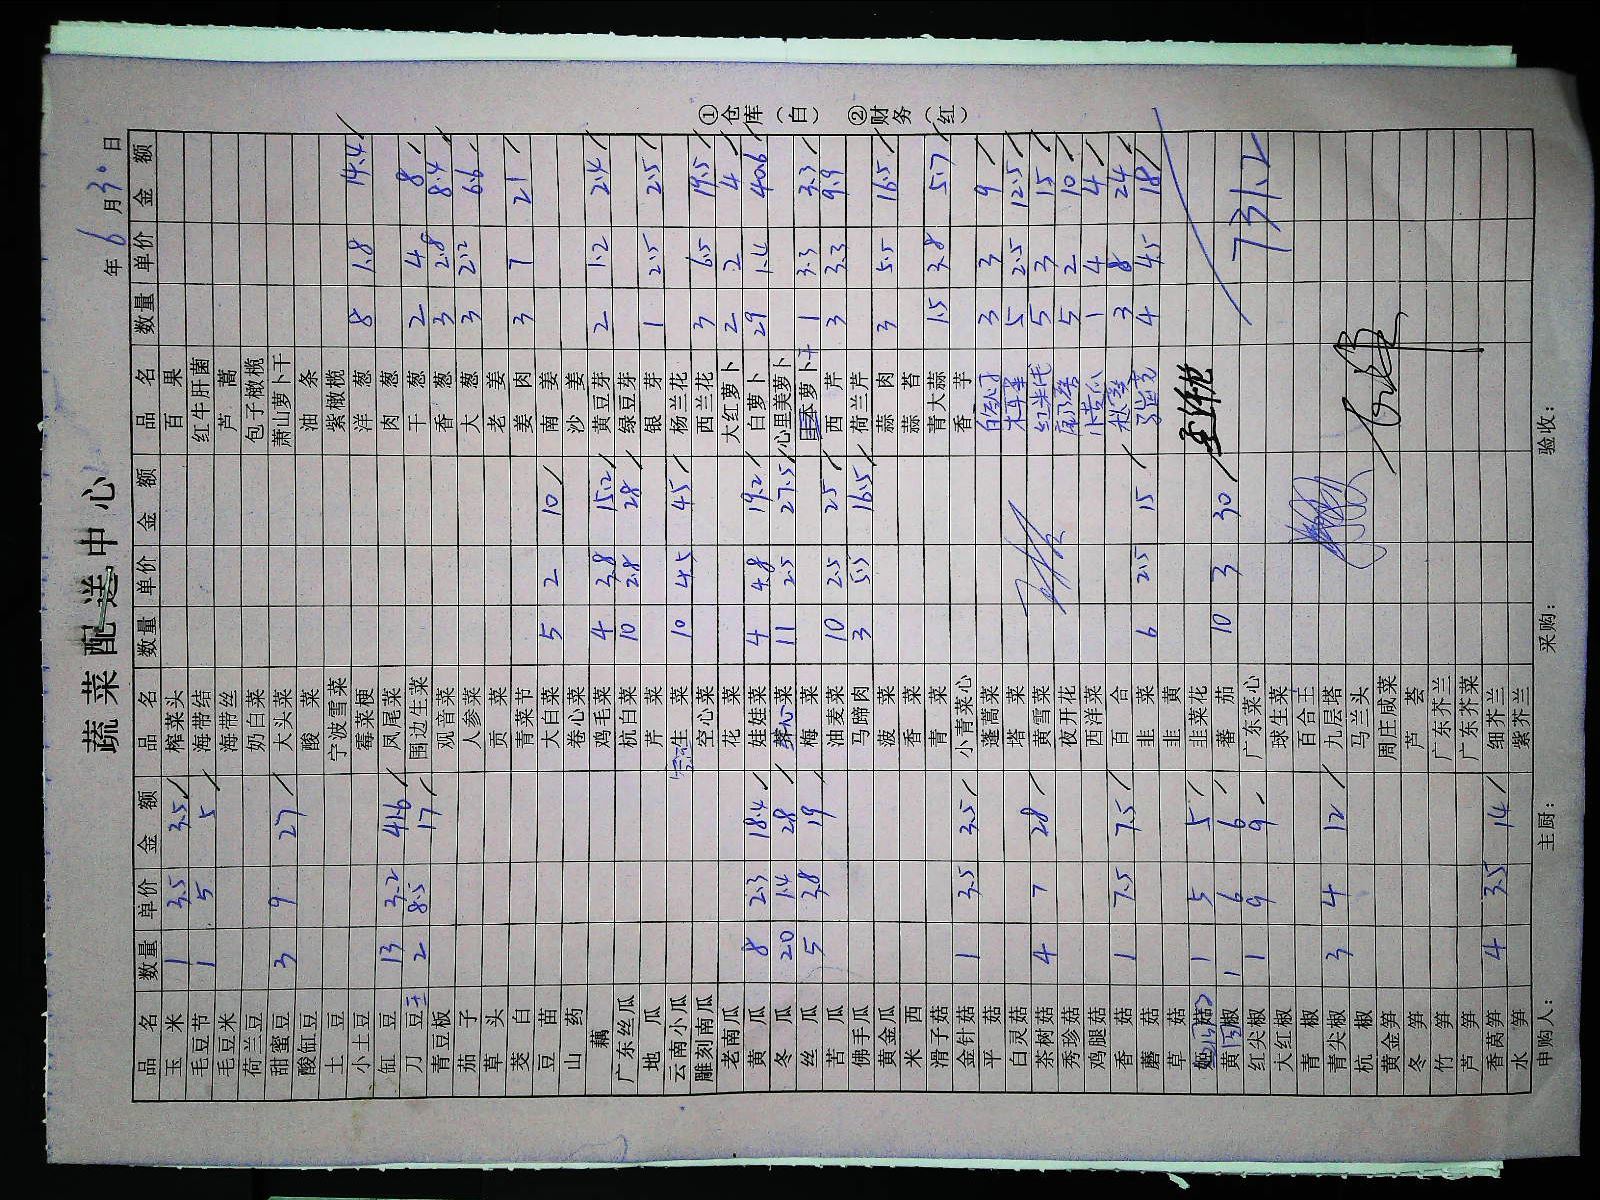 蔬菜配送中心
年 6 月 30 日
品名 数量 单价 金额 品名 数量 单价 金额 品名 数量 单价 金额
玉米 1 3.5 3.5 榨菜头 百果
毛豆节 1 5 5 海带结 红牛肝菌
毛豆米 海带丝 芦蒿
荷兰豆 奶白菜 包子橄榄
甜蜜豆 3 9 27 大头菜 萧山萝卜干
酸缸豆 酸菜 油条
土豆 宁波雪菜 紫橄榄
小土豆 霉菜梗 洋葱 8 1.8 14.4
缸豆 13 3.2 41.6 凤尾菜 肉葱
刀豆 2 8.5 17 围边生菜 干葱 2 4 8
青豆板 观音菜 香葱 3 2.8 8.4
茄子 人参菜 大葱 3 2.2 6.6
草头 贡菜 老姜
茭白 青菜节 姜肉 3 7 21
豆苗 大白菜 5 2 10 南姜
山药 卷心菜 沙姜
藕 鸡毛菜 4 3.8 15.2 黄豆芽 2 1.2 2.4
广东丝瓜 杭白菜 10 2.8 28 绿豆芽
地瓜 芹菜 银芽 1 2.5 2.5
云南小瓜 生菜 10 4.5 45 杨兰花
雕刻南瓜 空心菜 西兰花 3 6.5 19.5
老南瓜 花菜 大红萝卜 2 2 4
黄瓜 8 2.3 18.4 娃娃菜 4 4.8 19.2 白萝卜 29 1.4 40.6
冬瓜 20 1.4 28 菜 11 2.5 27.5 心里美萝卜
丝瓜 5 3.8 19 梅菜 萝卜 1 3.3 3.3
苦瓜 油麦菜 10 2.5 25 西芹 3 3.3 9.9
佛手瓜 马蹄肉 3 5.5 16.5 荷兰芹
黄金瓜 菠菜 蒜肉 3 5.5 16.5
米西 香菜 蒜苔
滑子菇 青菜 青大蒜 1.5 3.8 5.7
金针菇 1 3.5 3.5 小青菜心 香芋
平菇 蓬蒿菜 3 3 9
白灵菇 塔菜 5 2.5 12.5
茶树菇 4 7 28 黄雪菜 5 3 15
秀珍菇 夜开花 5 2 10
鸡腿菇 西洋菜 小黄瓜 1 4 4
香菇 1 7.5 7.5 百合 3 8 24
蘑菇 韭菜 6 2.5 15 4 4.5 18
草菇 韭黄
菇 1 5 5 韭菜花
黄椒 1 6 6 蕃茄 10 3 30
红尖椒 1 9 9 广东菜心 731.2
大红椒 球生菜
青椒 百合王
青尖椒 3 4 12 九层塔
杭椒 马兰头
黄金笋 周庄咸菜
冬笋 芦荟
竹笋 广东芥兰
芦笋 广东芥菜
香莴笋 4 3.5 14 细芥兰
水笋 紫芥兰
申购人： 主厨： 采购： 验收：
①仓库（白） ②财务（红）